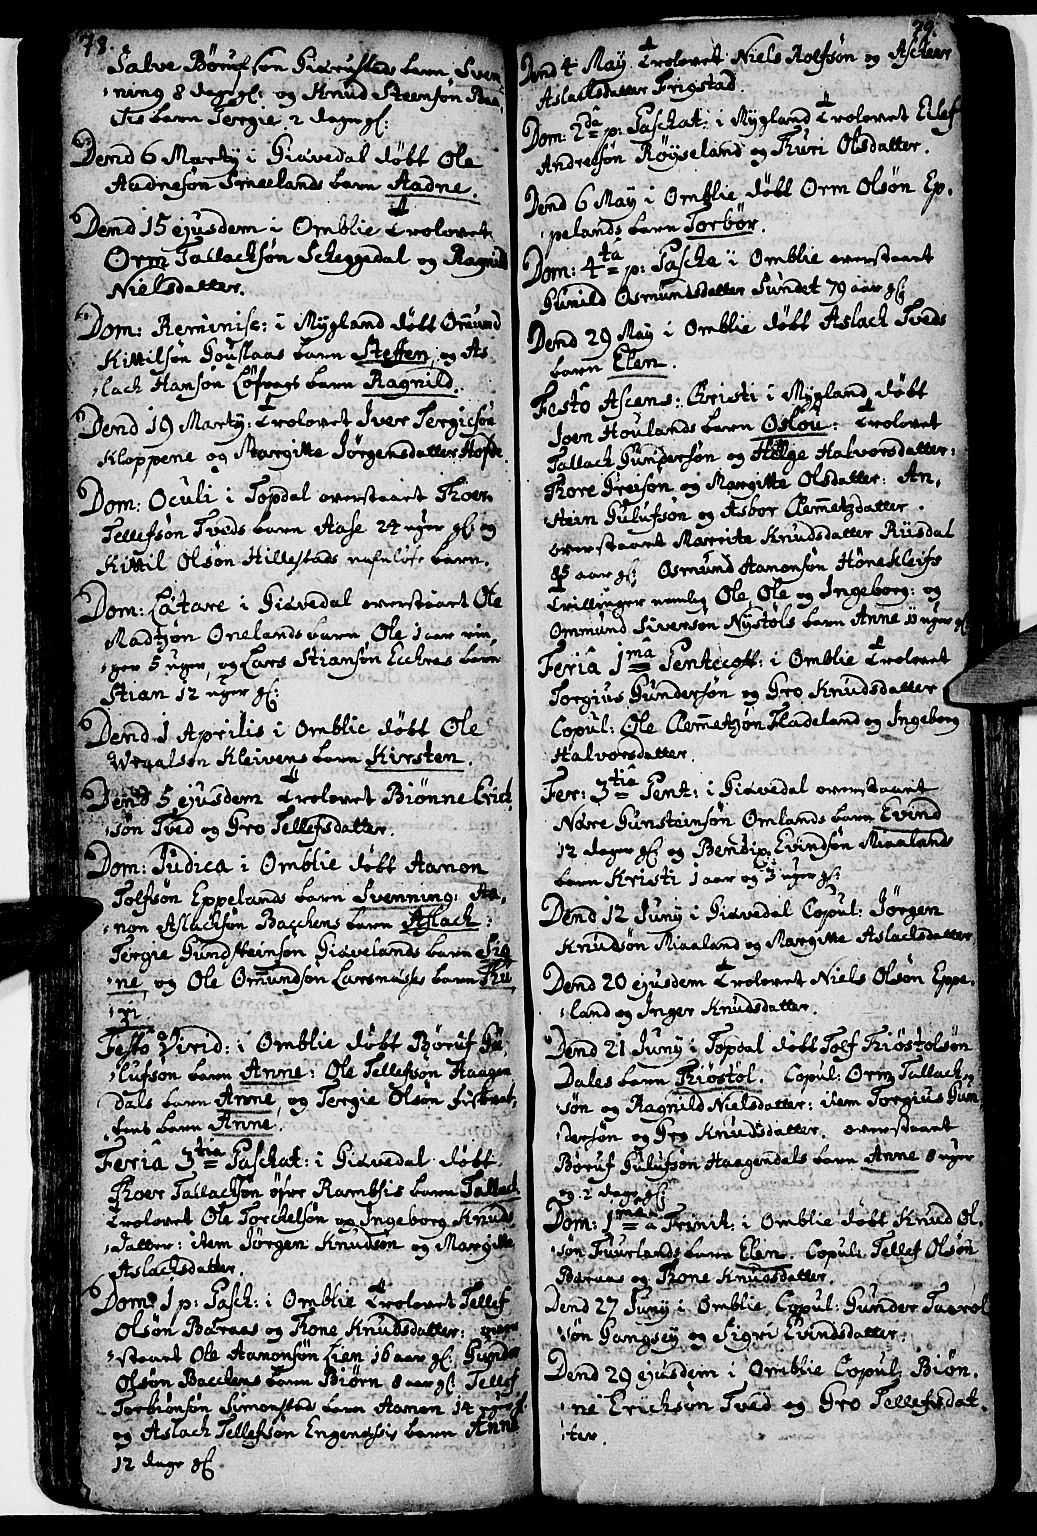 78.
Salve Børufsøn Gidvestads barn Sven-
ning 8 dage gl: og Knud Steensøn Baa-
sis barn Tergie 2 dage gl:
Dend 6 Marty i Giævedal døbt Ole
Audnesøn Smeelands barn Aadne.
Dend 15 ejusdem i Omblie trolovet
Orm Tallachsøn Scheggedal og Ragnild
Nielsdatter.
Dom: Reminisc: i Mygland døbt Omund
Kittilsøn Gouslaas barn Steffen, og As-
lach Hansøn Løfrags barn Ragnild.
Dend 19 Marty: trolovet Iver Tergiesøn
Kloppene og Margitte Jørgensdatter Hofde.
Dom: Oculi i Topdal overstaaet Thoer
Tellefsøn Tveds barn Aase 24 uger gl: og
Kittil Olsøn Hillestads nafnløse barn.
Dom: Lætare i Giævedal overstaaet Ole
Madtzøn Onelands barn Ole 1 aar rin-
ger 5 uger, og Lars Stiansøn Eechras barn
Stian 12 uger gl:
Dend 1 Aprilis i Omblie døbt Ole
Wraalsøn Kleivens barn Kirsten.
Dend 5 ejusdem trolovet Biønne Erich-
søn Tved og Gro Tellefsdatter.
Dom: Judica i Omblie døbt Aamon
Tolfsøn Eppelands barn Svenning: Aa-
non Aslachsøn Bacchens barn Aslach:
Tergie Gundsteinsøn Giævelands barn Sig-
ne og Ole Omundsøn Larsnæsses barn Thu-
ri.
Festo Virid: i Omblie døbt Børuf Gu-
lufsøn barn Anne: Ole Tellefsøn Haagen
dals barn Anne, og Tergie Olsøn
barn Anne.
Feria 3tia Paschat: i Giævedal døbt
Thoer Tallachsøn øfre Ramsiis barn Tallach.
trolovet Ole Torchelsøn og Ingeborg Knuds-
datter: item Jørgen Knudsøn og Margitte
Aslachsdatter.
Dom: 1 p: Pasch: i Omblie trolovet Tellef
Olsøn Baraas og Thone Knudsdatter: over-
staaet Ole Aamonsøn Lien 16 aar gl: Gunder
Olsøn Bacchens barn Biørn 8 aar gl: Tellef
Torbiønsøn Simonstad barn Aamon 14 uger gl:
og Aslach Tellefsøn Engenæssis barn Anne
12 dage gl:
79.
Dend 4 May trolovet Niels Rolfsøn og Aschær
Aslachsdatter Frigstad.
Dom: 2da p: Paschat: i Mygland trolovet Eilef
Andreæsøn Røyseland og Thuri Olsdatter.
Dend 6 May i Omblie døbt Orm Olsøn Ep-
pelands barn Torbør.
Dom: 4ta p: Pascha i Omblie overstaaet
Gunild Osmundsdatter Sundet 79 aar gl:
Dend 29 May i Omblie døbt Aslach Tveds
barn Elen.
Festo Ascens: Christi i Mygland døbt
Joen Houlands barn Oslou: trolovet
Tallach Gundersøn og Helge Halvorsdatter:
Thore Greisøn og Margitte Olsdatter: An-
stein Gulufsøn og Asbor Clemetzdatter.
overstaaet Marrite Knudsdatter Riisdal
85 aar gl: Osmund Aamonsøn Hønekleifs
trillinger nemlig Ole, Ole og Ingeborg: og
Ommund Siversøn Nystøls barn Anne 11 uger gl:
Feria 1ma Pentecost: i Omblie trolovet
Torgius Gundersøn og Gro Knudsdatter
Copul: Ole Clemetzøn Fladeland og Ingeborg
Halvorsdatter.
Fer: 3tia Pent: i Giævedal overstaaet
Nare Gunsteinsøn Omlands barn Evind
12 dager gl: og Bendix Evindsøn Miaalands
barn Kristi 1 aar og 3 uger gl:
Dend 12 Juny i Giævedal Copul: Jørgen
Knudsøn Miaaland og Margitte Aslachsdatter
Dend 20 ejusdem trolovet Niels Olsøn Eppe-
land og Inger Knudsdatter.
Dend 21 Juny i Topdal døbt Tolf Thiøstolsøn
Dales barn Thiøstol. Copul: Orm Tallach-
søn og Ragnild Nielsdatter: item Torgius Gun-
dersøn og Gro Knudsdatter. overstaaet
Børuf Gulufsøn Haagendals barn Anne 8 uger
og 2 dage gl:
Dom: 1ma a Trinit: i Omblie døbt Knud Ol-
søn Fuurlands barn Elen. Copul: Tellef Olsøn
Baraas og Thone Knudsdatter.
Dend 27 Juny i Omblie Copul: Gunder Taarol-
søn Gangsey og Sigri Evindsdatter.
Dend 29 ejusdem i Omblie Copul: Biøn-
ne Erichsøn Tved og Gro Tellefsdat-
ter.